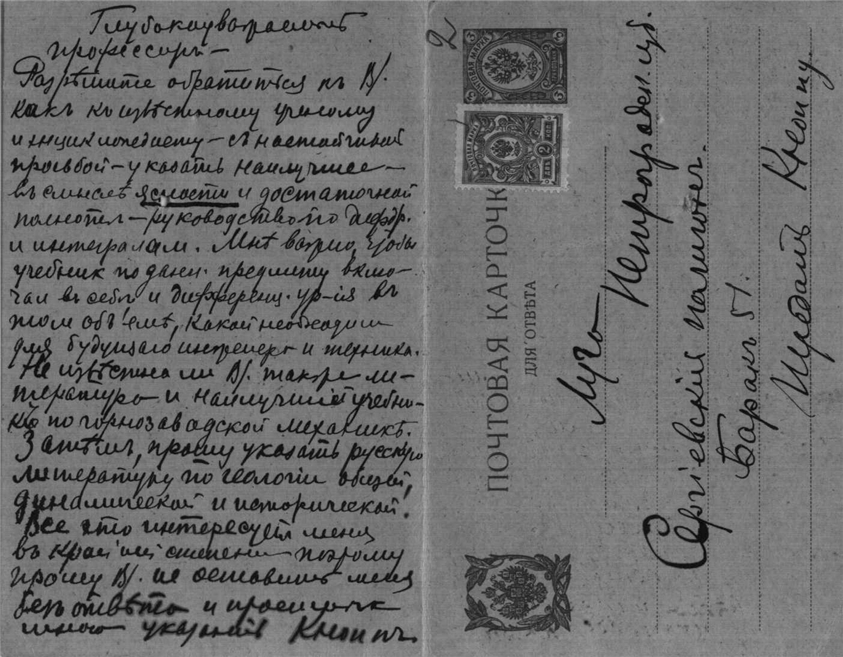 Глубокоуважаемый
профессоръ –
Разрѣшите обратится къ В/.
какъ къ извѣстному ученому
и энциклопедисту – съ настойчивой
просьбой – указать наилучшее –
въ смыслѣ ясности и достаточной
полноты – руководство по дифер.
и интеграламъ. Мнѣ важно, чтобы
учебник по данн. предмету вклю-
чал въ себѣ и дифференц. ур-ія въ
том объемѣ, какой необходим
для будущаго инженера и техника.
Не извѣстна ли В/. также ли-
тература и наилучший учебни-
къ по горнозаводской механикѣ.
Затѣмъ, прошу указать русскую
литературу по геологіи общей,
динамической и исторической!
Все это интересуетъ меня
въ крайней степени поэтому
прошу В/. не оставить меня
безъ отвѣта и
указанія Кноппъ
2
5 5
2
ПОЧТОВАЯ КАРТОЧК
ДЛЯ ОТВѢТА
Луга Петроградск. губ.
Сергіевскій полигонъ.
Баракъ 51.
Кноппу.